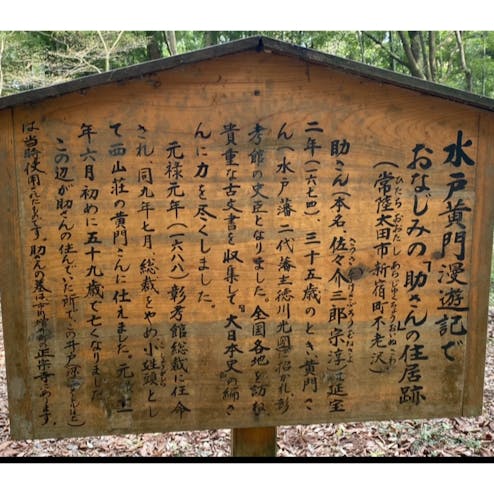 水戸黄門漫遊記で
おなじみの「助さんの住居跡」
(常陸太田市新宿町不老沢)
助さん(本名、佐々介三郎宗淳)は延宝
二年(一六七四)、三十五歳のとき黄門さ
ん(水戸藩二代藩主徳川光圀)に招かれ、彰
考館の史臣となりました。全国各地を訪ね
貴重な古文書を収集して"大日本史"の編さ
んに力を尽くしました。
元禄元年(一六八八)彰考館総裁に任命
され、同九年七月、総裁をやめ小姓頭とし
て西山荘の黄門さんに仕えました。元
年六月初めに五十九歳で亡くなりました
この辺が助さんの住んでいた所で、この井戸
は当時使用したものです。助さんの墓は の正宗寺にあります。